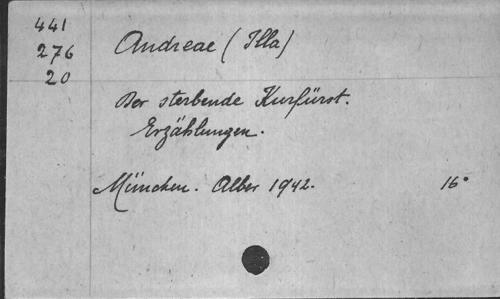 441
276
20
Andreae (Illa)
Der sterbende Kurfürst.
Erzählungen.
München. Alber 1942. 16°